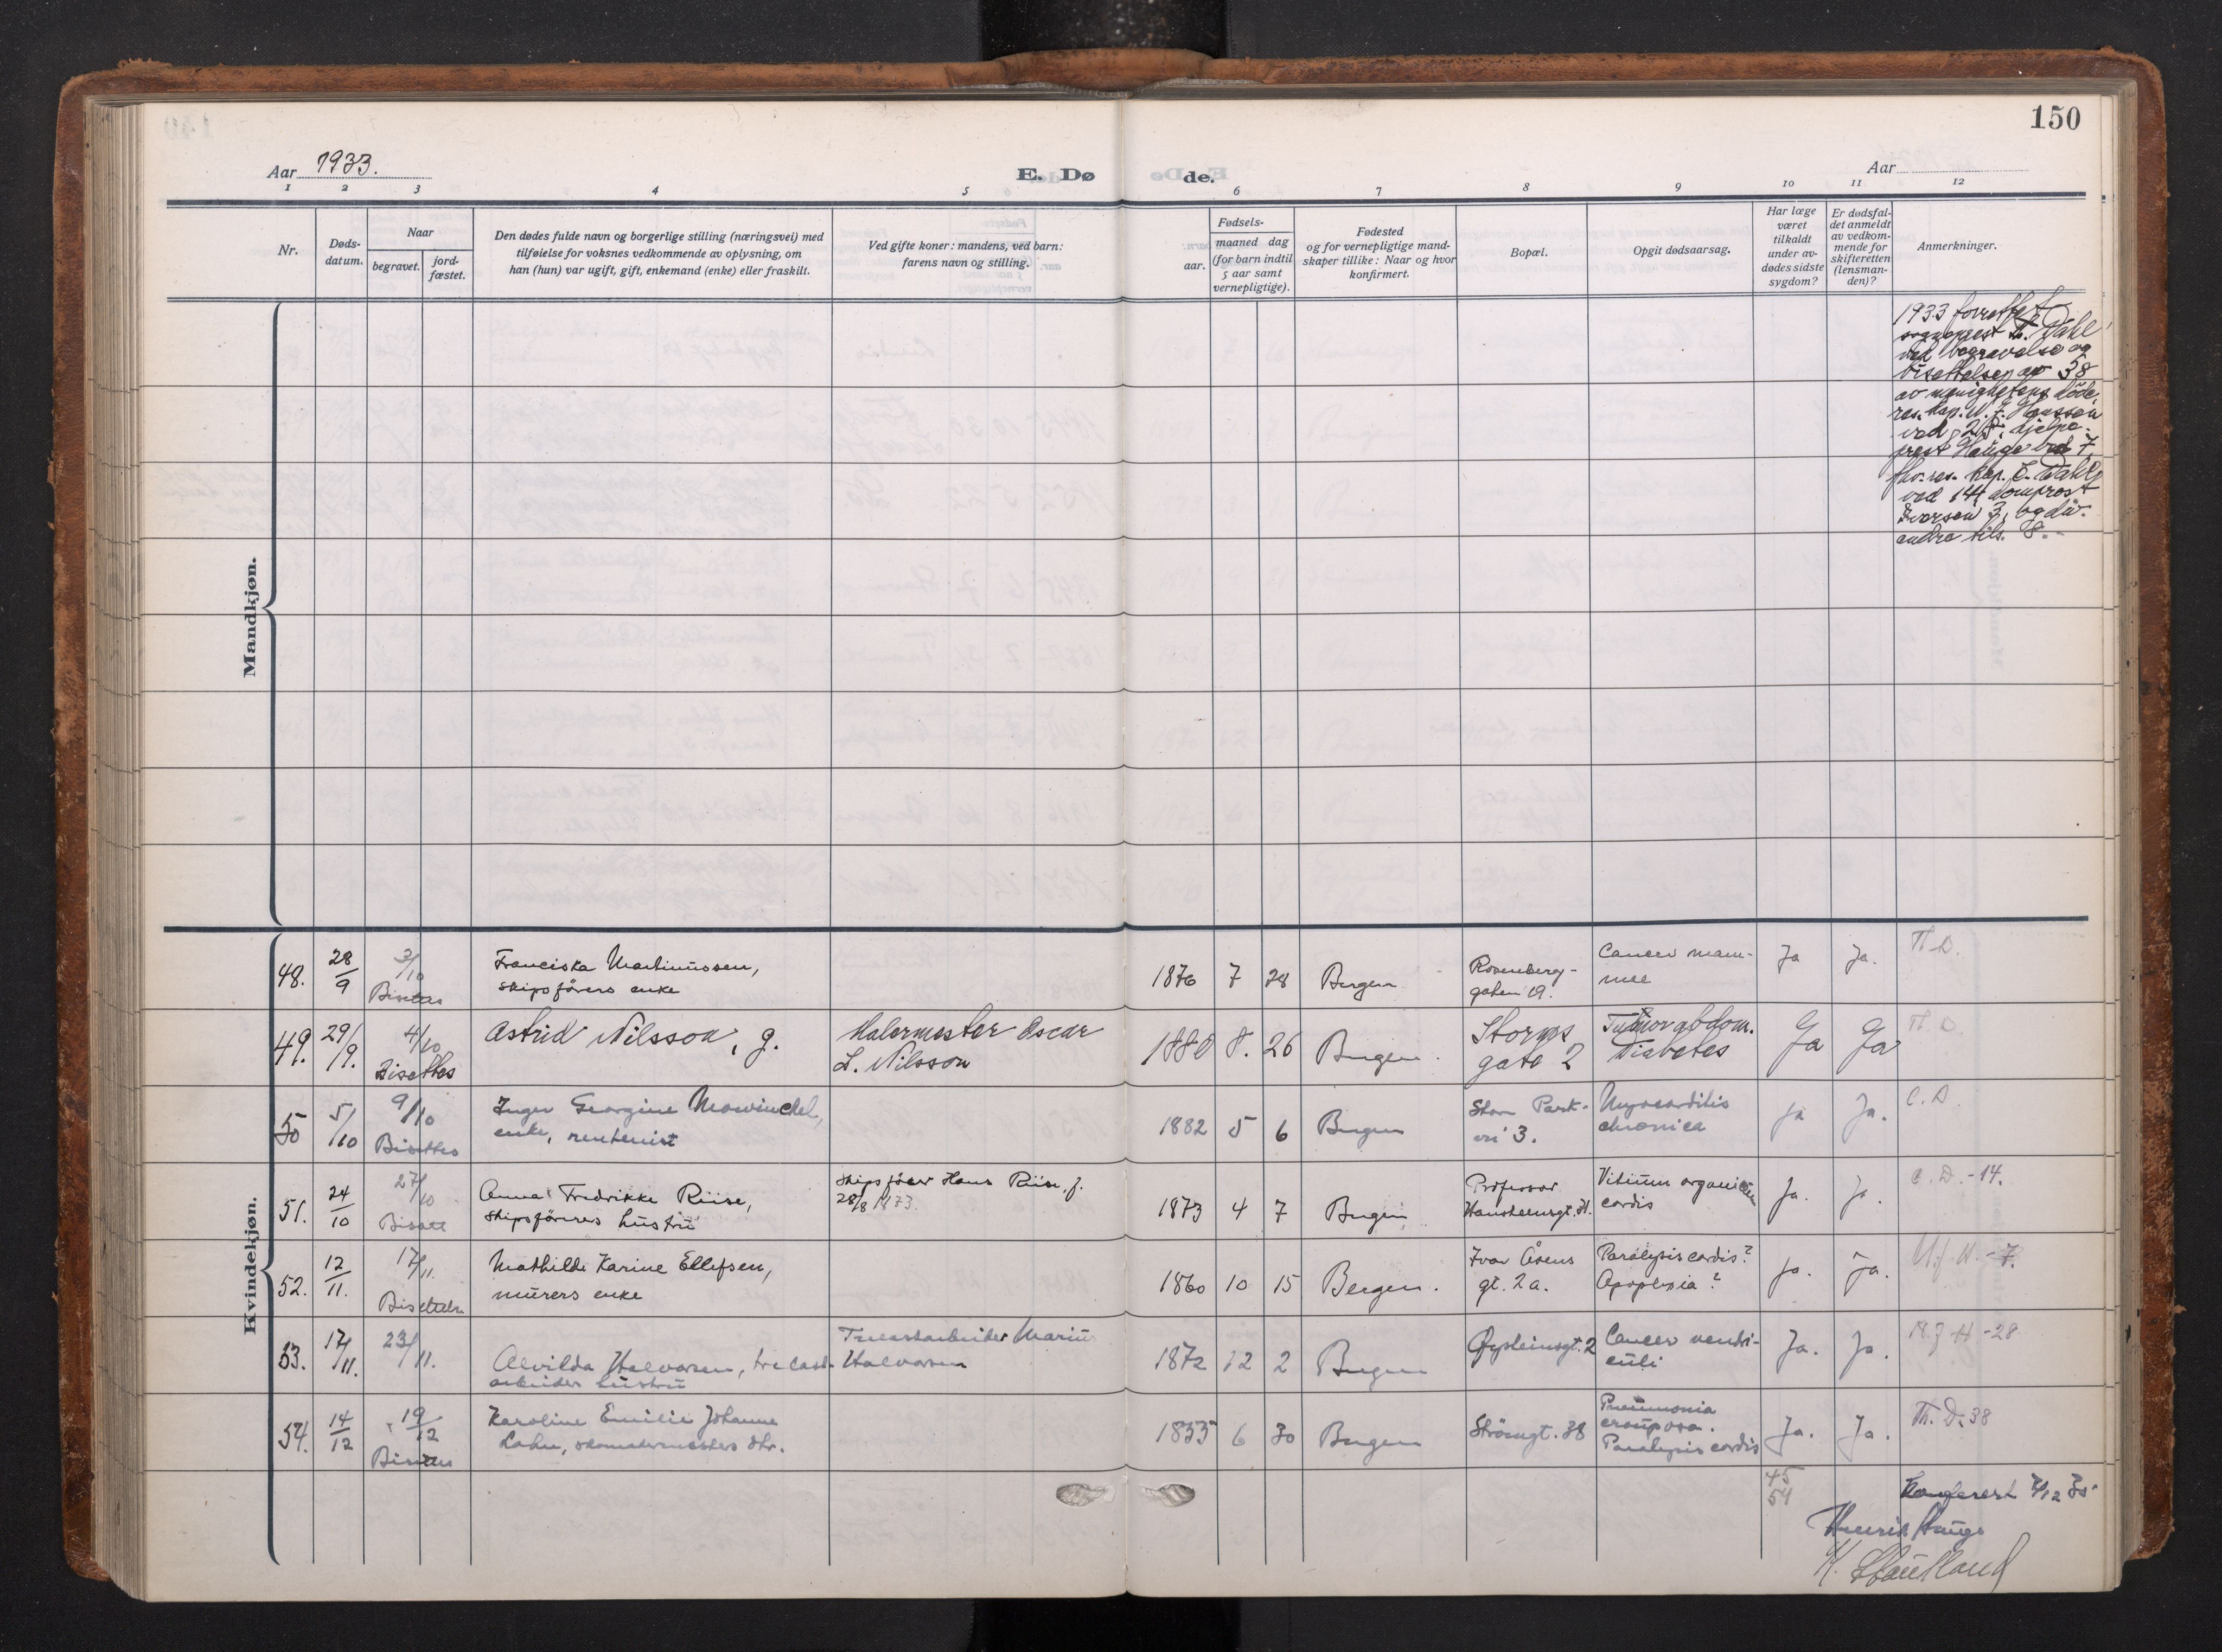 150
Aar 1933.
E. Dø
de.
Aar
1 2 3 4 5 6 7 8 9 10 11 12
Nr.
Døds-
datum.
Naar
begravet.
jord-
fæstet.
Den dødes fulde navn og borgerlige stilling (næringsvei) med
tilføielse for voksnes vedkommende av oplysning, om
han (hun) var ugift, gift, enkemand (enke) eller fraskilt.
Ved gifte koner: mandens, ved barn:
farens navn og stilling.
Fødsels-
aar.
maaned dag
(for barn indtil
5 aar samt
vernepligtige).
Fødested
og for vernepligtige mand-
skaper tillike: Naar og hvor
konfirmert.
Bopæl.
Opgit dødsaarsag.
Har læge
været
tilkaldt
under av-
dødes sidste
sygdom?
Er dødsfal-
det anmeldt
av vedkom-
mende for
skifteretten
(lensman-
den)?
Anmerkninger.
Mandkjøn.
1933 forrettet
sogneprest Th. Dahl
ved begravelse og
bisettelsen av 38
av menighetens døde,
res. kap. N. J. Hanssen
ved 28, hjelpe-
prest Hauge ved 7,
fhv. res. kap. C. Dahl
ved 14, domprost
Iversen 3, og div.
andre tils. 8.
Kvindekjøn.
48. 28/9 3/10 Bisettes
Franciska Martinussen,
skipsførers enke
1876 7 28 Bergen
Rosenberg-
gaten 19.
Cancer mam-
mee
Ja Ja. Th. D.
49. 29/9. 4/10 Bisettes
Astrid Nilsson, g.
Malermester Oscar
L. Nilsson
1880 8. 26 Bergen.
Storms
gate 2
Tumor abdom.
Diabetes
Ja Ja Th. D.
50 5/10 9/10 Bisettes
Inger Georgine Mowinckel,
enke, rentenist
1882 5 6 Bergen
Store Park-
vei 3.
Myocarditis
chronica
Ja Ja. C. D.
51. 24/10 27/10 Bisatt
Anna Fredrikke Riise,
skipsførers hustru
Skipsfører Hans Riise, f.
28/8 1873.
1873 4 7 Bergen
Professor
Hansteensgt. 31.
Vitium organicum
cordis
Ja. Ja. C. D. -14.
52. 12/11. 17/11. Bisettelse
Mathilde Karine Ellefsen,
murers enke
1860 10 15 Bergen.
Ivar Åsens
gt. 2a.
Paralysis cordis?
Apoplexia?
Ja. Ja. N. J. H. -7.
53. 17/11. 23/11.
Alvilda Halvorsen, trelast-
arbeiders hustru
Trelastarbeider Marius
Halvorsen
1872 12 2 Bergen
Øysteinsgt. 2
Cancer ventri-
culi
Ja. Ja. N. J. H. -28
54. 14/12 19/12 Bisettes
Karoline Emilie Johanne
Lahn, skomakermesters dtr.
1855 6 30 Bergen
Strømgt. 38
Pneumonia
crouposa.
Paralysis cordis
Ja. Ja. Th. D. 38
45
54
Konferert
Henrik Hauge